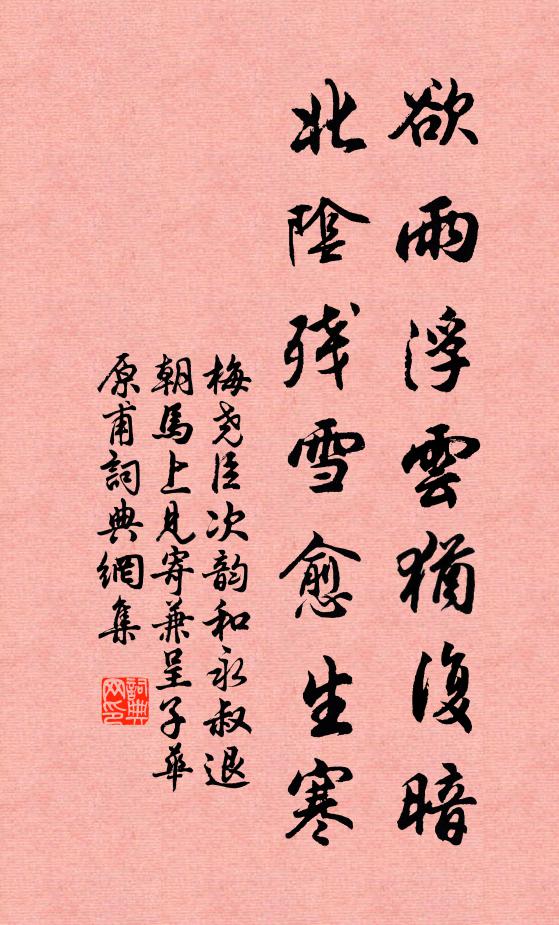 欲雨浮雲猶復暗
北陰残雪愈生寒
梅尧臣次韵和永叔退
朝馬上見寄兼呈子華
原甫詞典網集
詞典网印